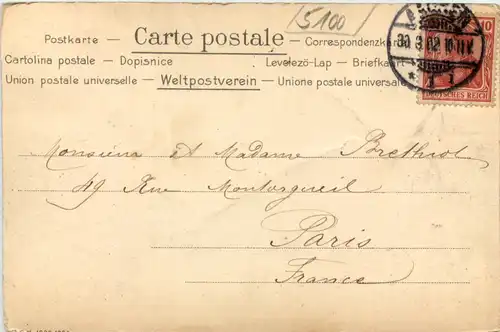 5100
Postkarte — Carte postale — Correspondenzkarte
Cartolina postale — Dopisnice Levelező-Lap — Briefkaart
Union postale universelle — Weltpostverein — Unione postale universale
30.3.02 10-11V.
10
DEUTSCHES REICH
Monsieur et Madame Brethiot
49 Rue Montorgueil
Paris
France